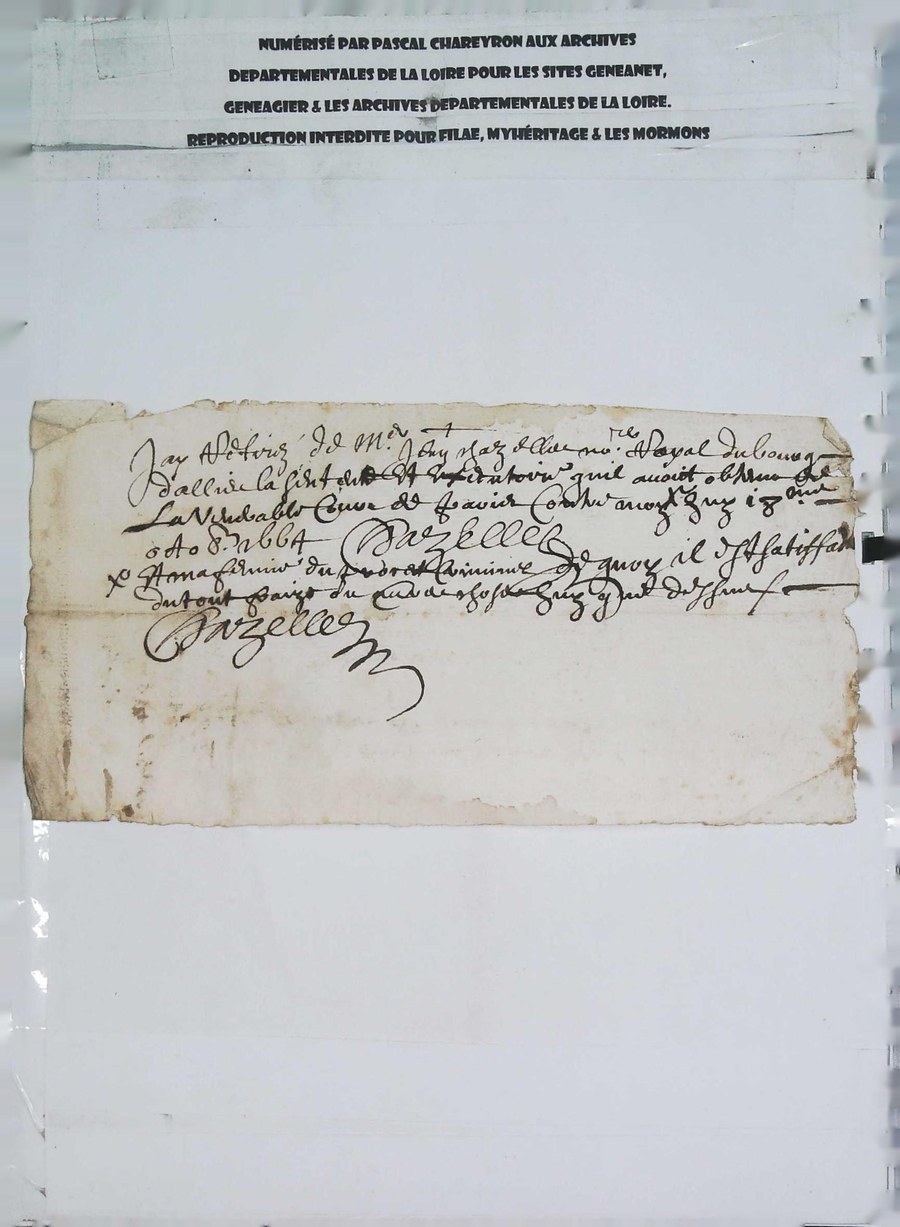 NUMÉRISÉ PAR PASCAL CHAREYRON AUX ARCHIVES
DEPARTEMENTALES DE LA LOIRE POUR LES SITES GENEANET,
GENEAGIER & LES ARCHIVES DEPARTEMENTALES DE LA LOIRE.
REPRODUCTION INTERDITE POUR FILAE, MYHÉRITAGE & LES MORMONS
Jay Retiré de Me Jean chazelles nore Royal du bourg
dallieu la sentence Et exécutoire quil avoit obtenu de
La Venerable Cour de contre moy 18me
8re 1664 Chazelles
x Et ma femme du procet Criminel de quoy il est satisfait
du tout chose que dessus
Chazelles